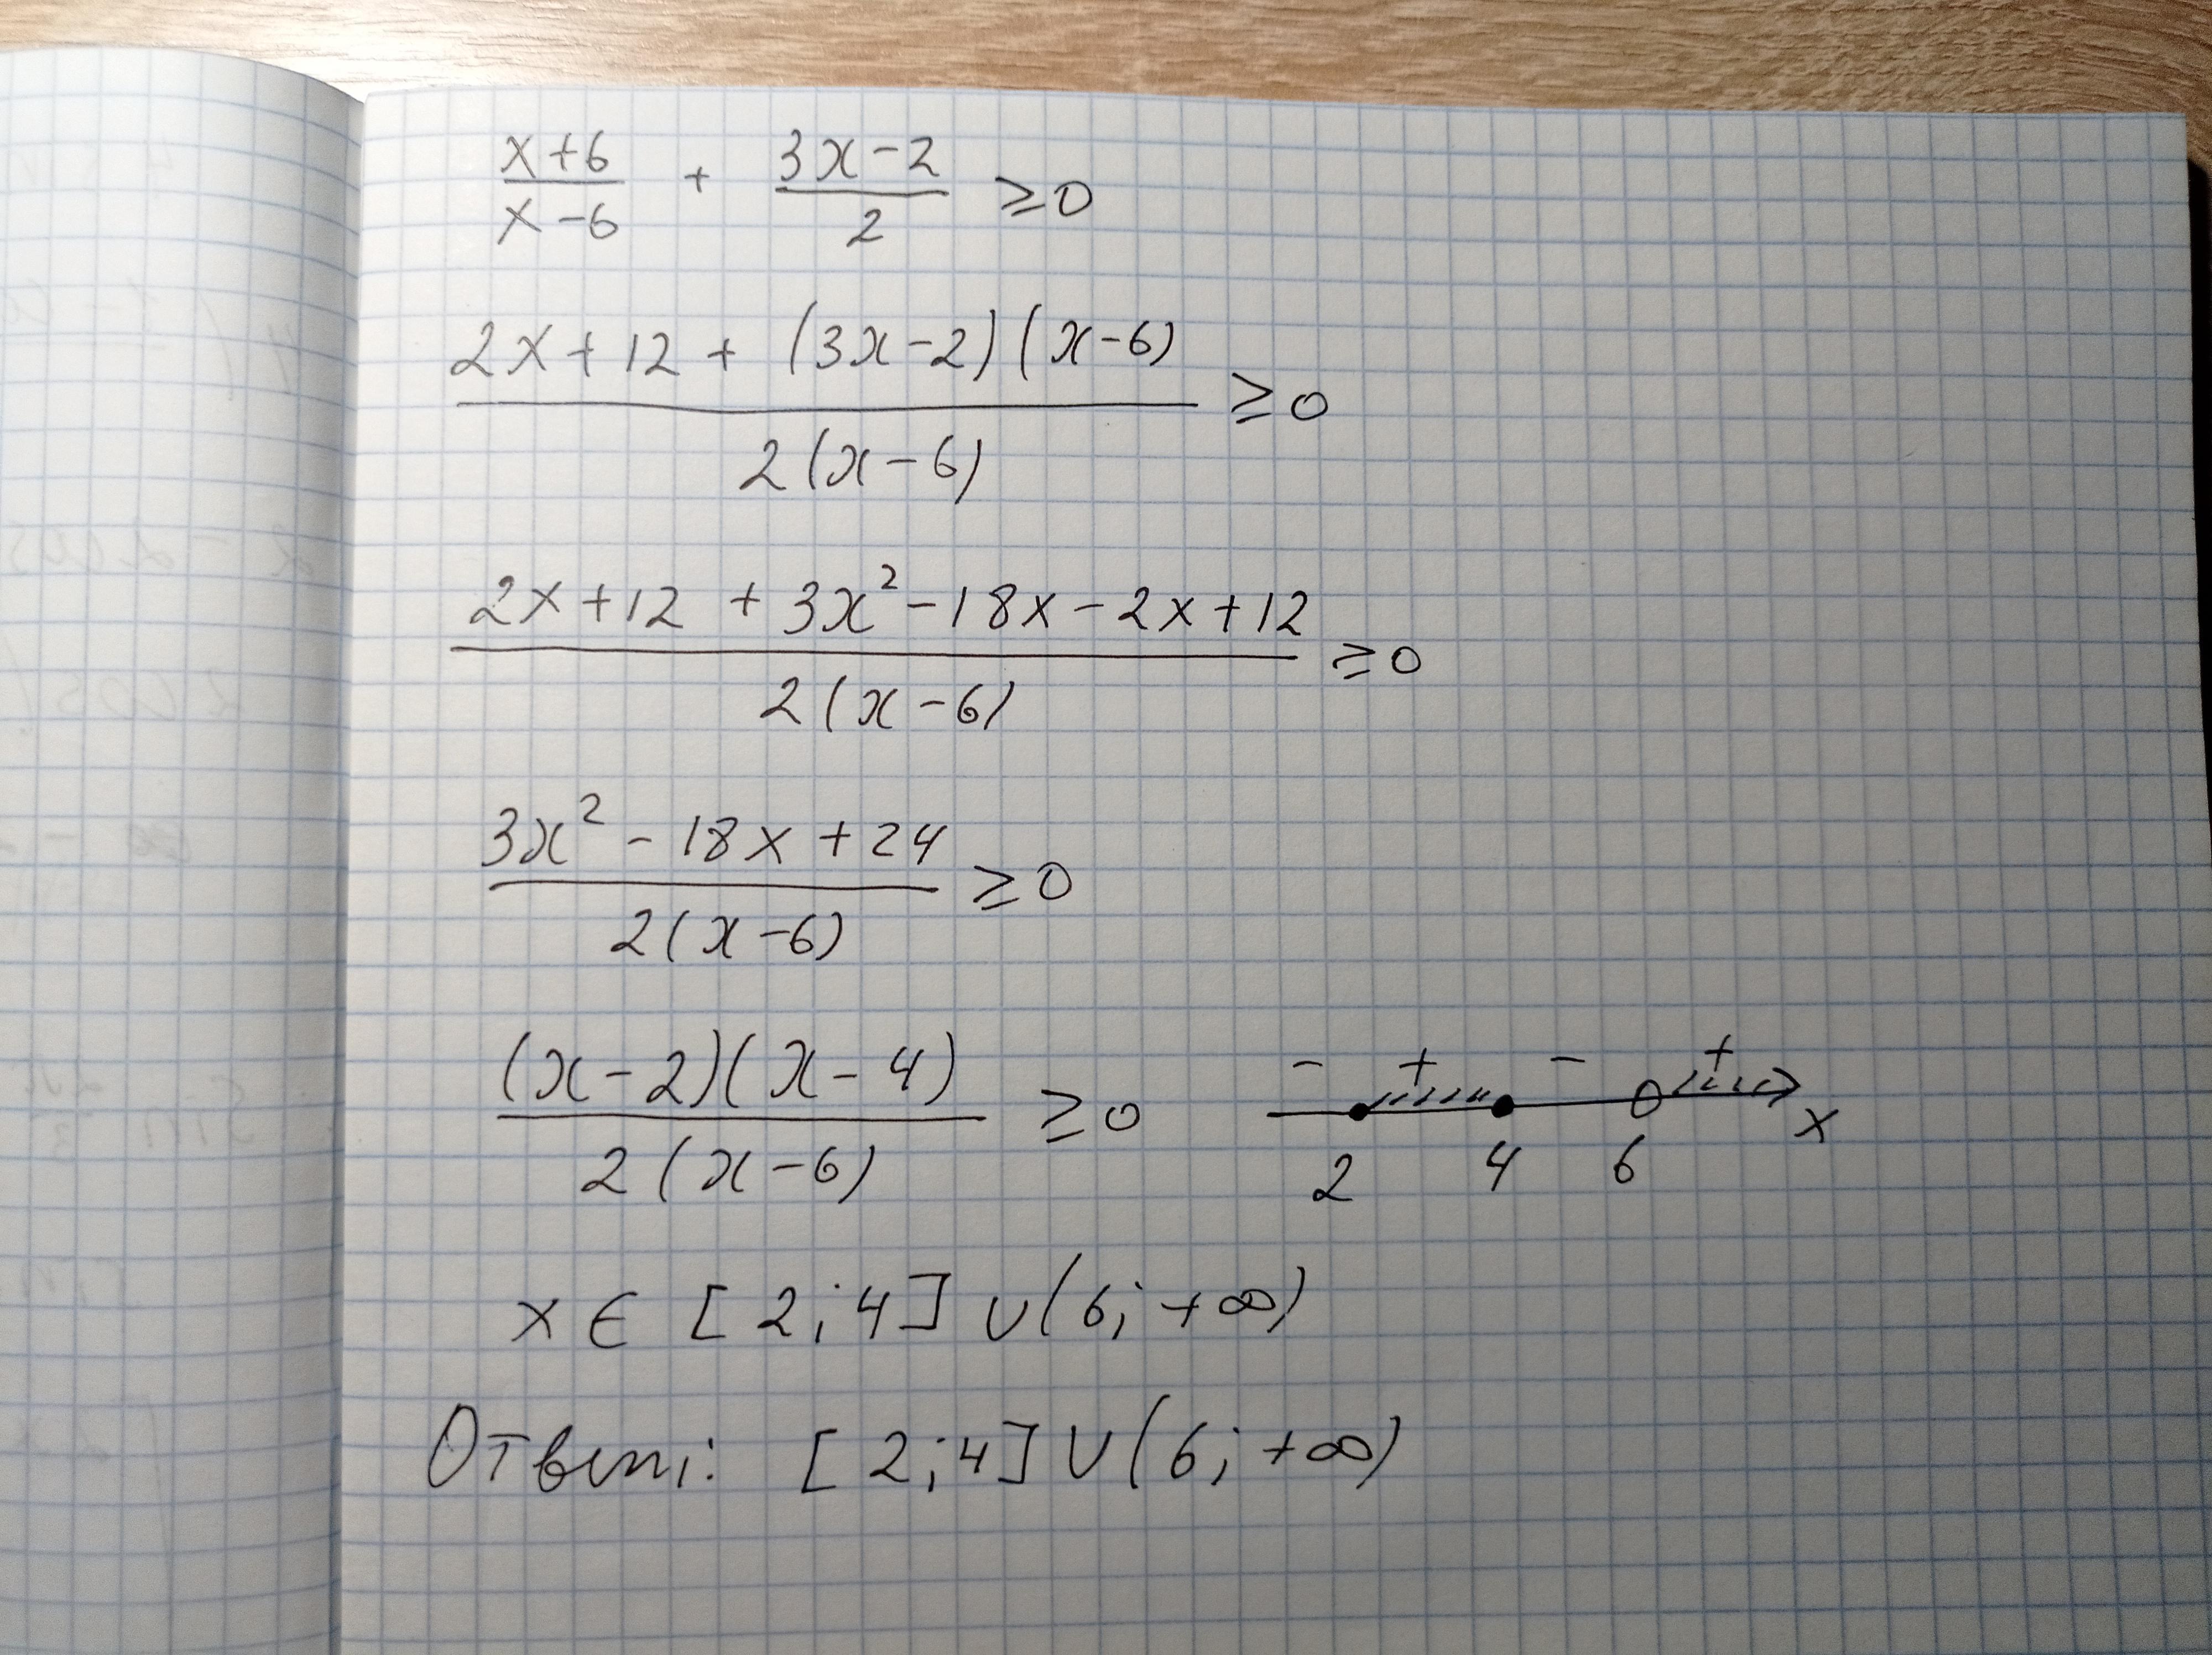 x+6/x-6 + 3x-2/2 ≥0
2x+12+(3x-2)(x-6)/2(x-6) ≥0
2x+12+3x²-18x-2x+12/2(x-6) ≥0
3x²-18x+24/2(x-6) ≥0
(x-2)(x-4)/2(x-6) ≥0
- + - +
2 4 6 x
x ∈ [2;4] ∪ (6;+∞)
Ответ: [2;4] ∪ (6;+∞)